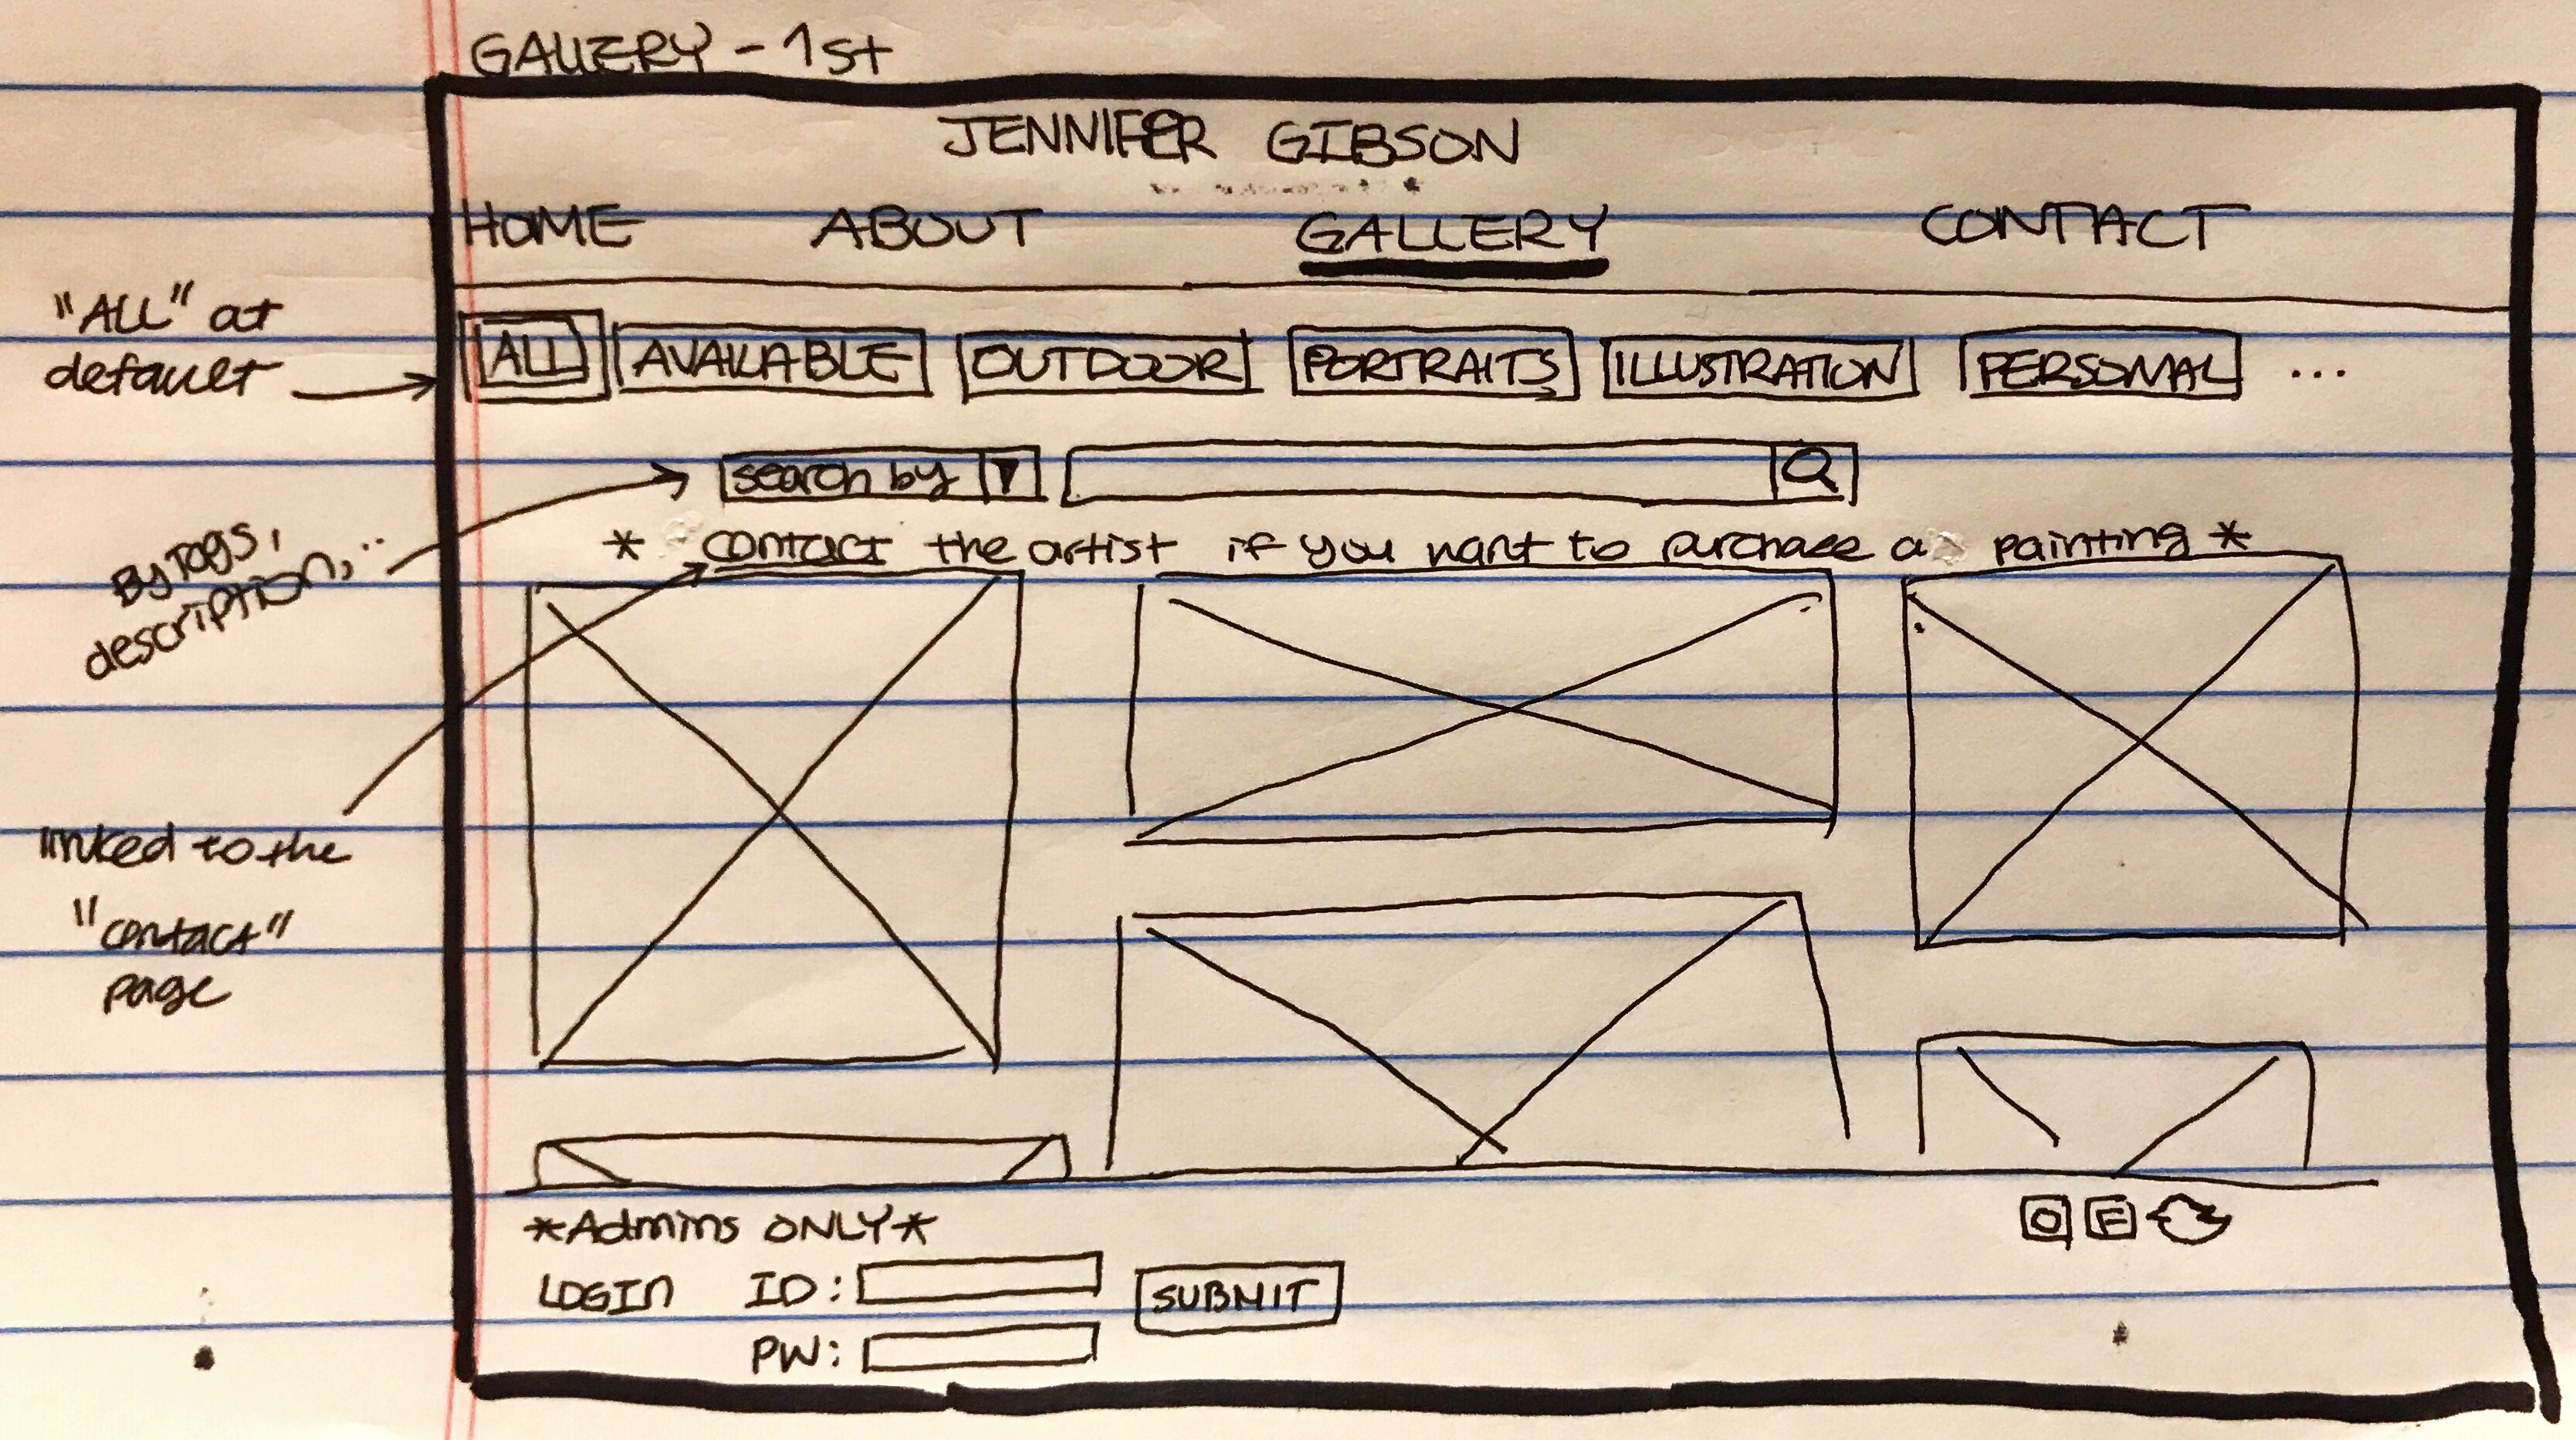 GALLERY - 1st
JENNIFER GIBSON
HOME ABOUT GALLERY CONTACT
"ALL" at
default
ALL AVAILABLE OUTDOOR PORTRAITS ILLUSTRATION PERSONAL ...
search by
By Tags,
description,...
* contact the artist if you want to purchase a painting *
linked to the
"contact"
page
*Admins ONLY*
LOGIN ID:
SUBMIT
PW:
F